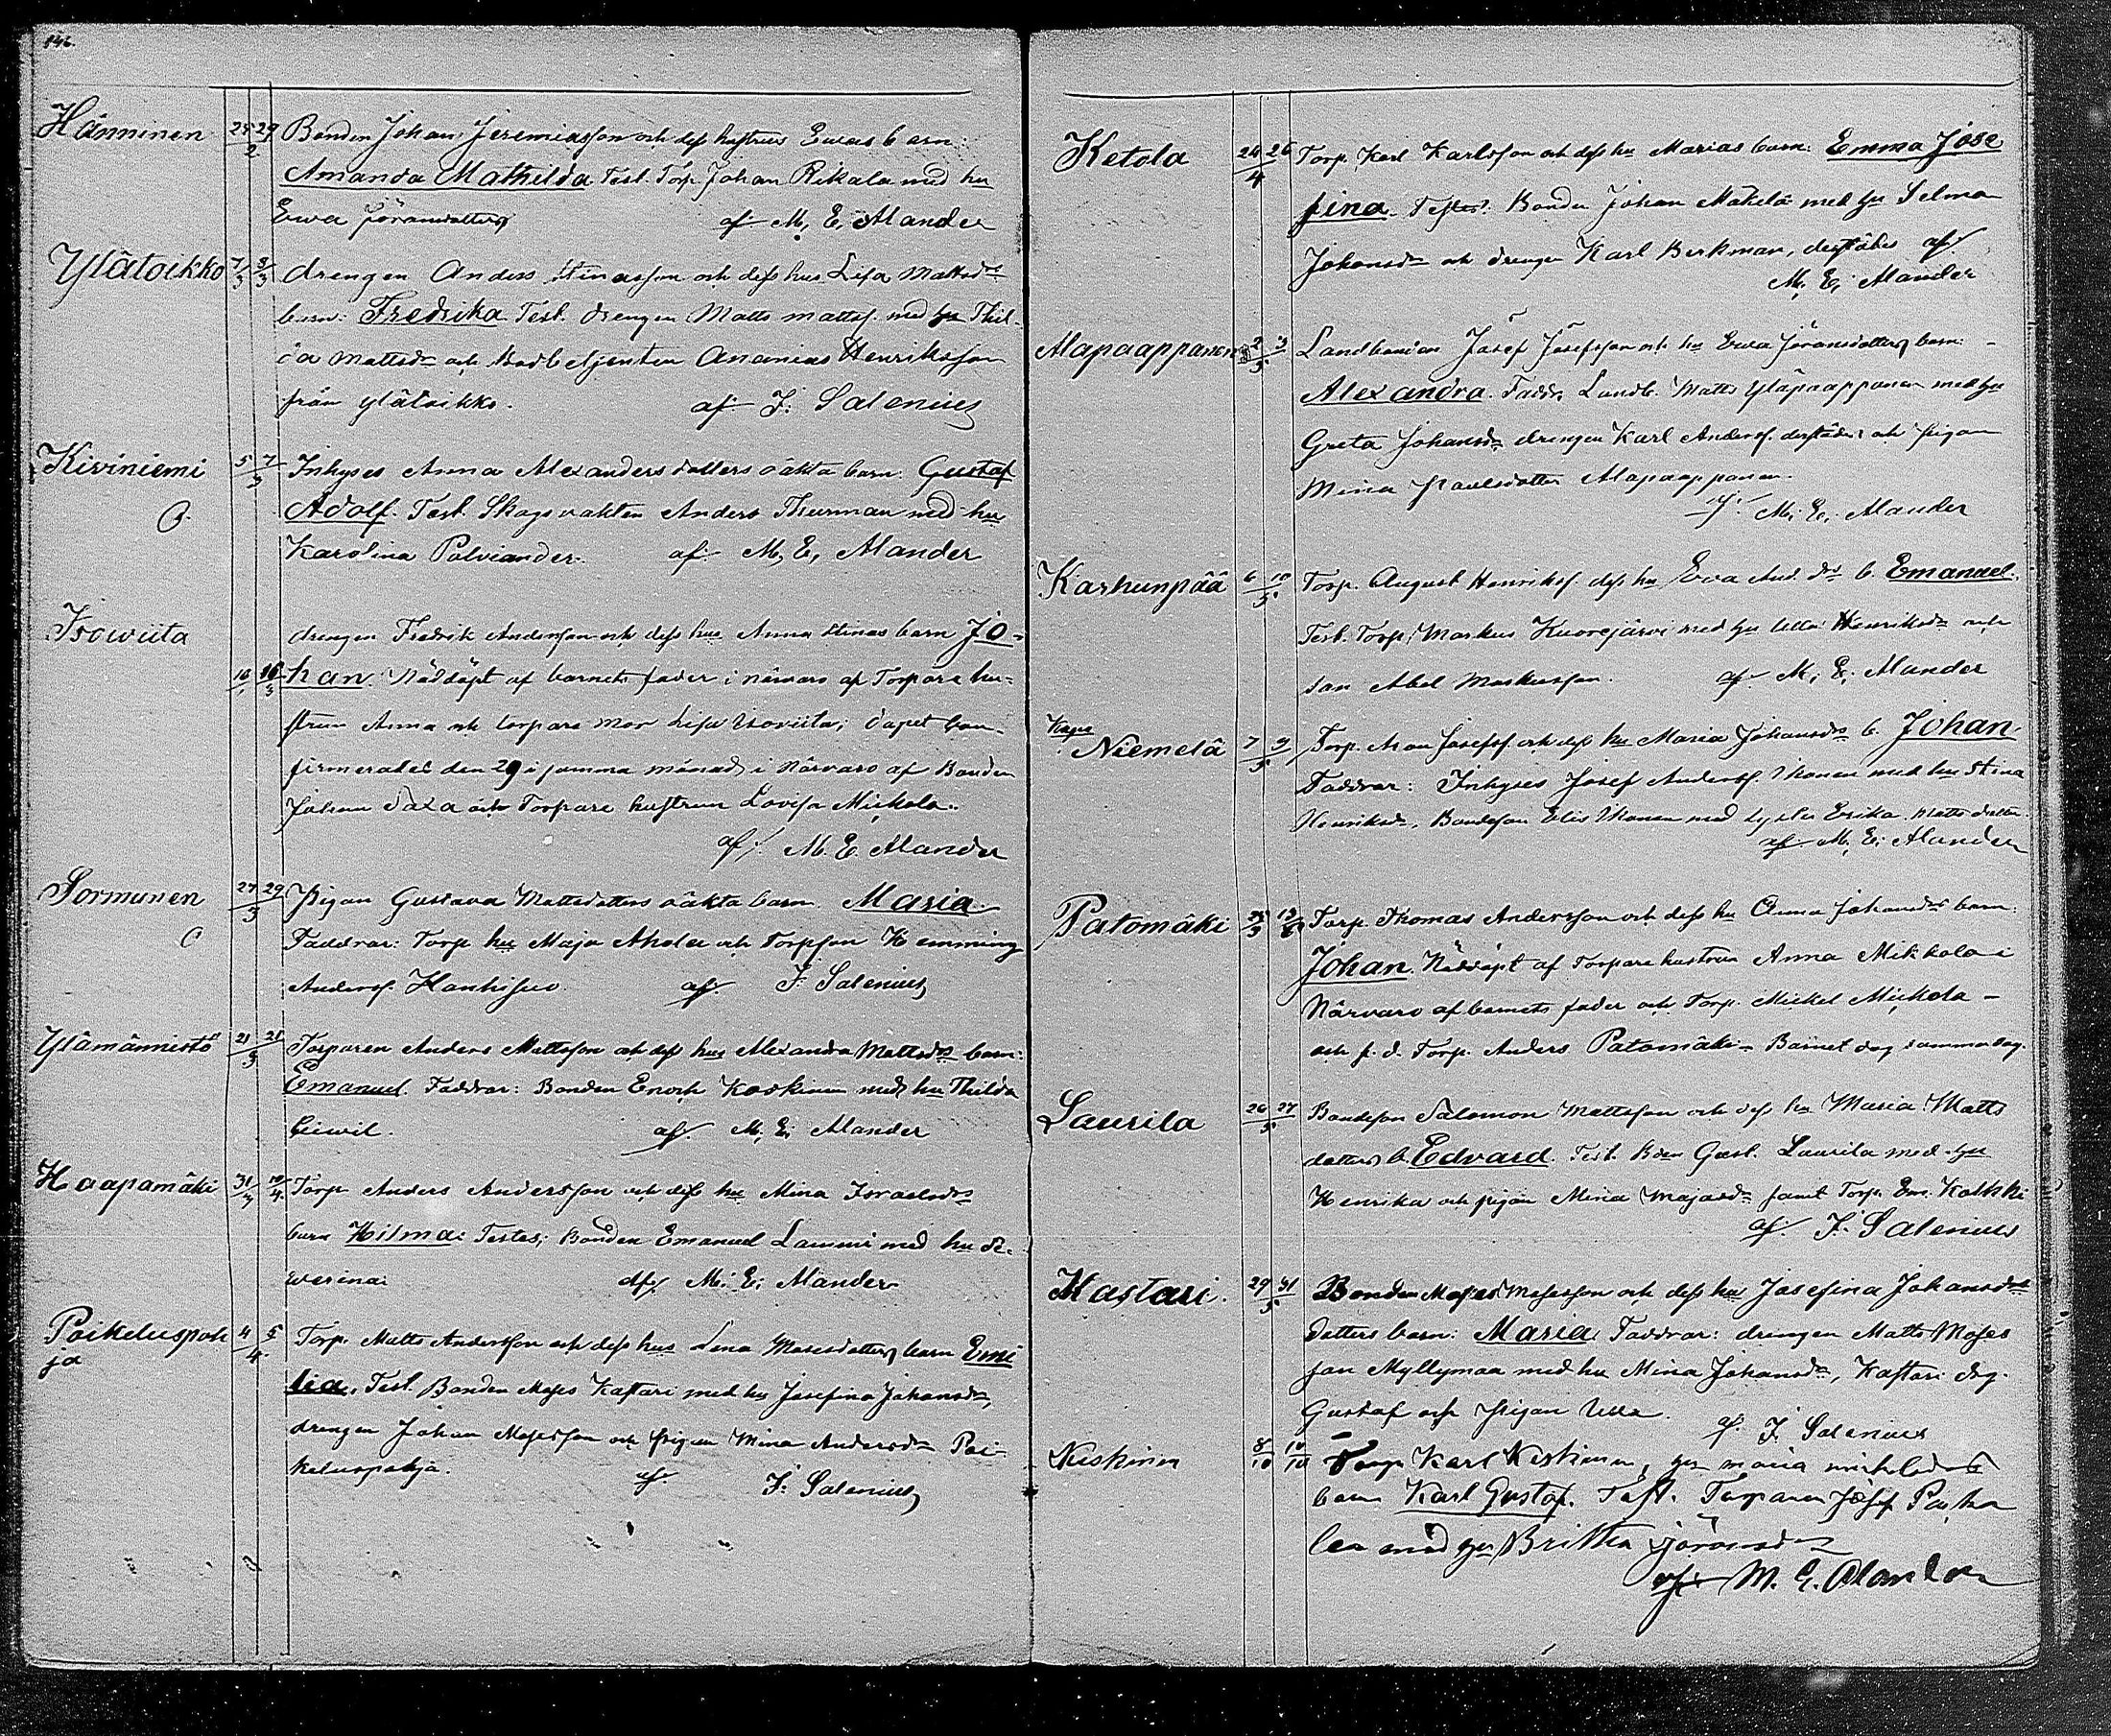 146.
Hänninen 25 29/2 Bonden Johan Jeremiasson och dess hustrus Evas barn:
Amanda Mathilda Test. Torp. Johan Rikala med hu
Ewa Göransdotter af M. E. Alander
Ylätoikko 7/3 8/3 drengen Anders Stinasson och dess hus Lisa Mattsdrs
barn: Fredrika Test. drengen Matts Mattss. med hu Thil-
da Mattsdr och Ananias Henriksson
från Ylätoikko. af F. Salenius
Kiviniemi 5 7/3 Inhyses Anna Alexandersdotters oäkta barn. Gustaf
O. Adolf. Test. Skogsvakten Anders Thurman med hu
Karolina Palviander. af M. E. Alander
Isowiita drengen Fredrik Andersson och dess hus Anna Stinas barn Jo-
16 16/3 han. Nöddöpt af barnets fader i närvaro af Torpare hu-
strun Anna och torpare mor Lisa Isoviita; dopet con-
firmerades den 29 i samma månad i Närvaro af Bonden
Johan Saxa och Torpare hustrun Lovisa Mickola.
af M. E. Alander
Sormunen 27 29/3 Pigan Gustava Mattsdotters oäkta barn. Maria
O Faddrar: Torp. hu Maja Ahola och Torpson Hemming
Anderss. Hankisuo. af F. Salenius
Ylämännistö 21 25/3 Torparen Anders Mattsson och dess hus Alexandra Mattsdrs barn:
Emanuel. Faddrar: Bonden Enoch Koskinen med hu Thilda
af M. E. Alander
Haapamäki 31/3 10/4 Torp. Anders Andersson och dess hu Mina Israelsdrs
barn Hilma: Testes; Bonden Emanuel Lammi med hu Se-
werina: af M. E. Alander
Poikeluspoh 4 5/4 Torp. Matts Andersson och dess hus Lena Mosesdotters barn Emi
ja lia. Test. Bonden Moses Kastari med hu Josefina Johansdr,
drengen Johan Mosesson och Pigan Mina Andersdr Poi-
keluspohja. af F. Salenius
Ketola 24 26/4 Torp. Karl Karlsson och dess hu Marias barn: Emma Jose
fina. Testes: Bonden Johan Mäkelä med hu Selma
Johansdr och drengen Karl Berkman, derstädes af
M. E. Alander
Alapaappanen 2 3/5 Landbonden Josef Josefsson och hu Ewa Göransdotters barn:
Alexandra. Faddr. Landb. Matts Yläpaappanen med hu
Greta Johansdr drengen Karl Anderss. derstädes och pigan
Mina Paulsdotter Alapaappanen.
af M. E. Alander
Karhunpää 6 10/5 Torp. August Henrikss. dess hu Eva And. drs b. Emanuel.
Test. Torp. Markus Kuorejärvi med hu Ulla Henriksdr och
son Abel Markusson. af M. E. Alander
Niemelä 7 9/5 Torp. Josefss. och dess hu Maria Johansdrs b. Johan.
Faddrar: Inhyses Josef Anderss. Ikonen med hu Stina
Henriksdr, Bondeson Elis Ikonen med syster Erika Mattsdotter.
af M. E. Alander
Patomäki Torp. Thomas Andersson och dess hu Anna Johansdrs barn:
Johan. Nöddöpt af Torpare hustrun Anna Mikkola i
Närvaro af barnets fader och Torp. Mickel Mickola –
och f. d. Torp. Anders Patomäki – Barnet dog samma dag.
Laurila 26 27/5 Bondeson Salomon Mattsson och dess hu Maria Matts
dotters b. Edvard. Test. Bden Gust. Laurila med hu
Henrika och pigan Mina Majasdr samt Torp. Em. Kolkki
af F. Salenius
Kastari. 29 31/5 Bonden Moses Mosesson och dess hu Josefina Johansd
dotters barn: Maria Faddrar: drengen Matts Moses
son Myllymaa med hu Mina Johansdr, Kastari dg.
Gustaf och Pigan Ulla. af F. Salenius
Keskinen 8/10 10/10 Torp. Karl Keskinen, hu Maria
barn Karl Gustaf. Test. Torparen Josef
med hu Britta Göransdr
af M. E. Alander